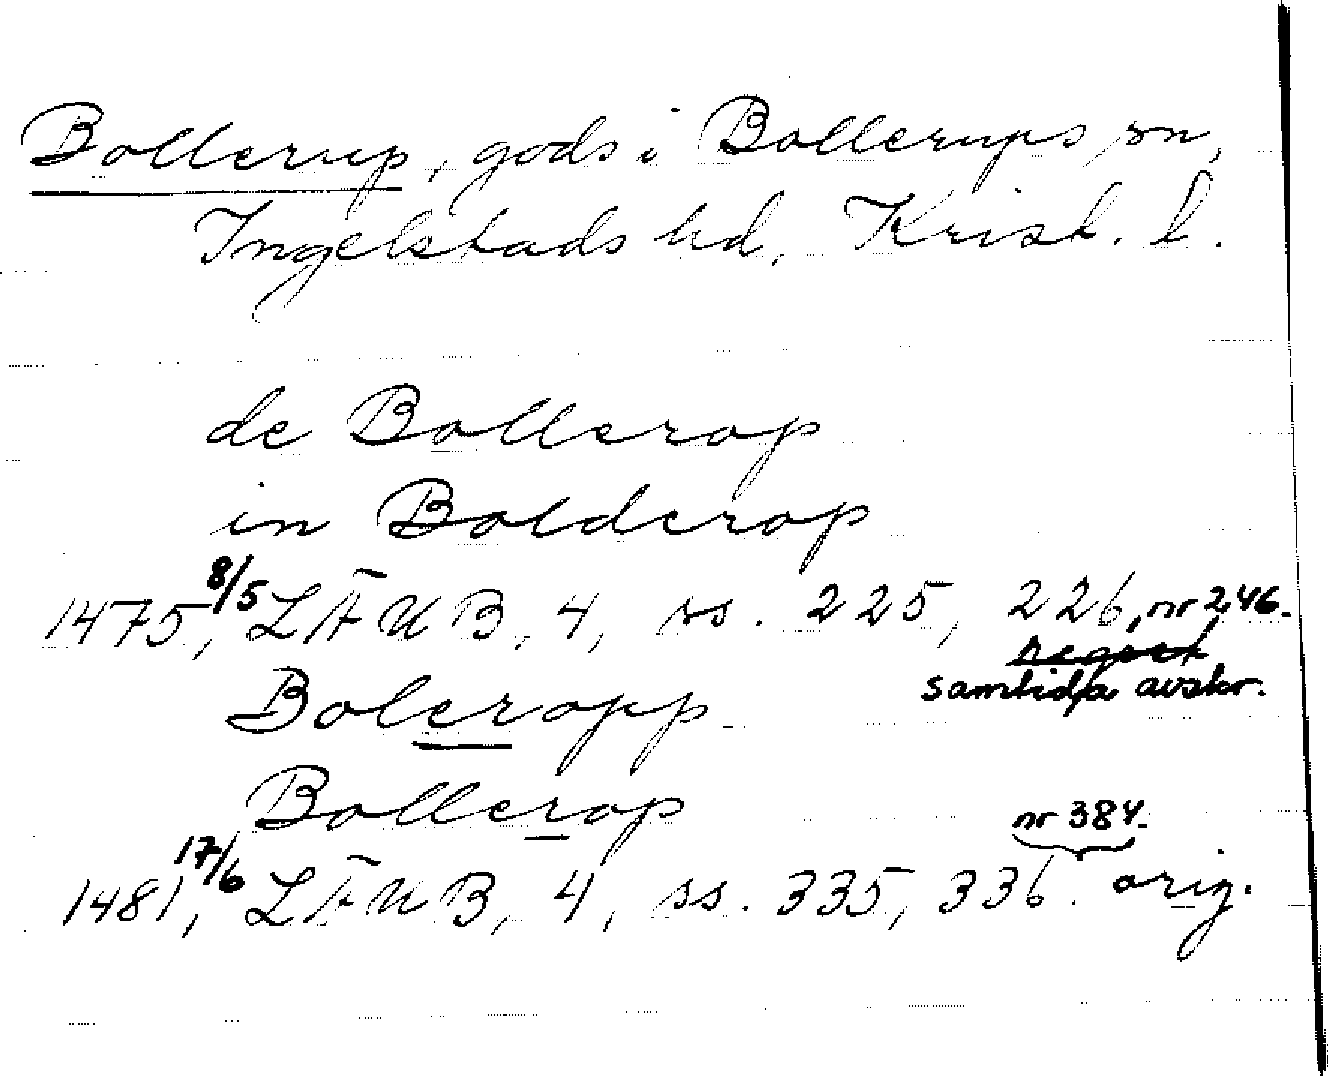 Bollerup, gods i Bollerups sn,
Ingelstads hd, Krist. l.
de Bollerop
in Bolderop
1475, 8/5 LÄUB, 4, ss. 225, 226, nr 246.
regest
samtida avskr.
Boleropp
Bollerop
nr 384.
1481, 17/6 LÄUB, 4, ss. 335, 336. orig.